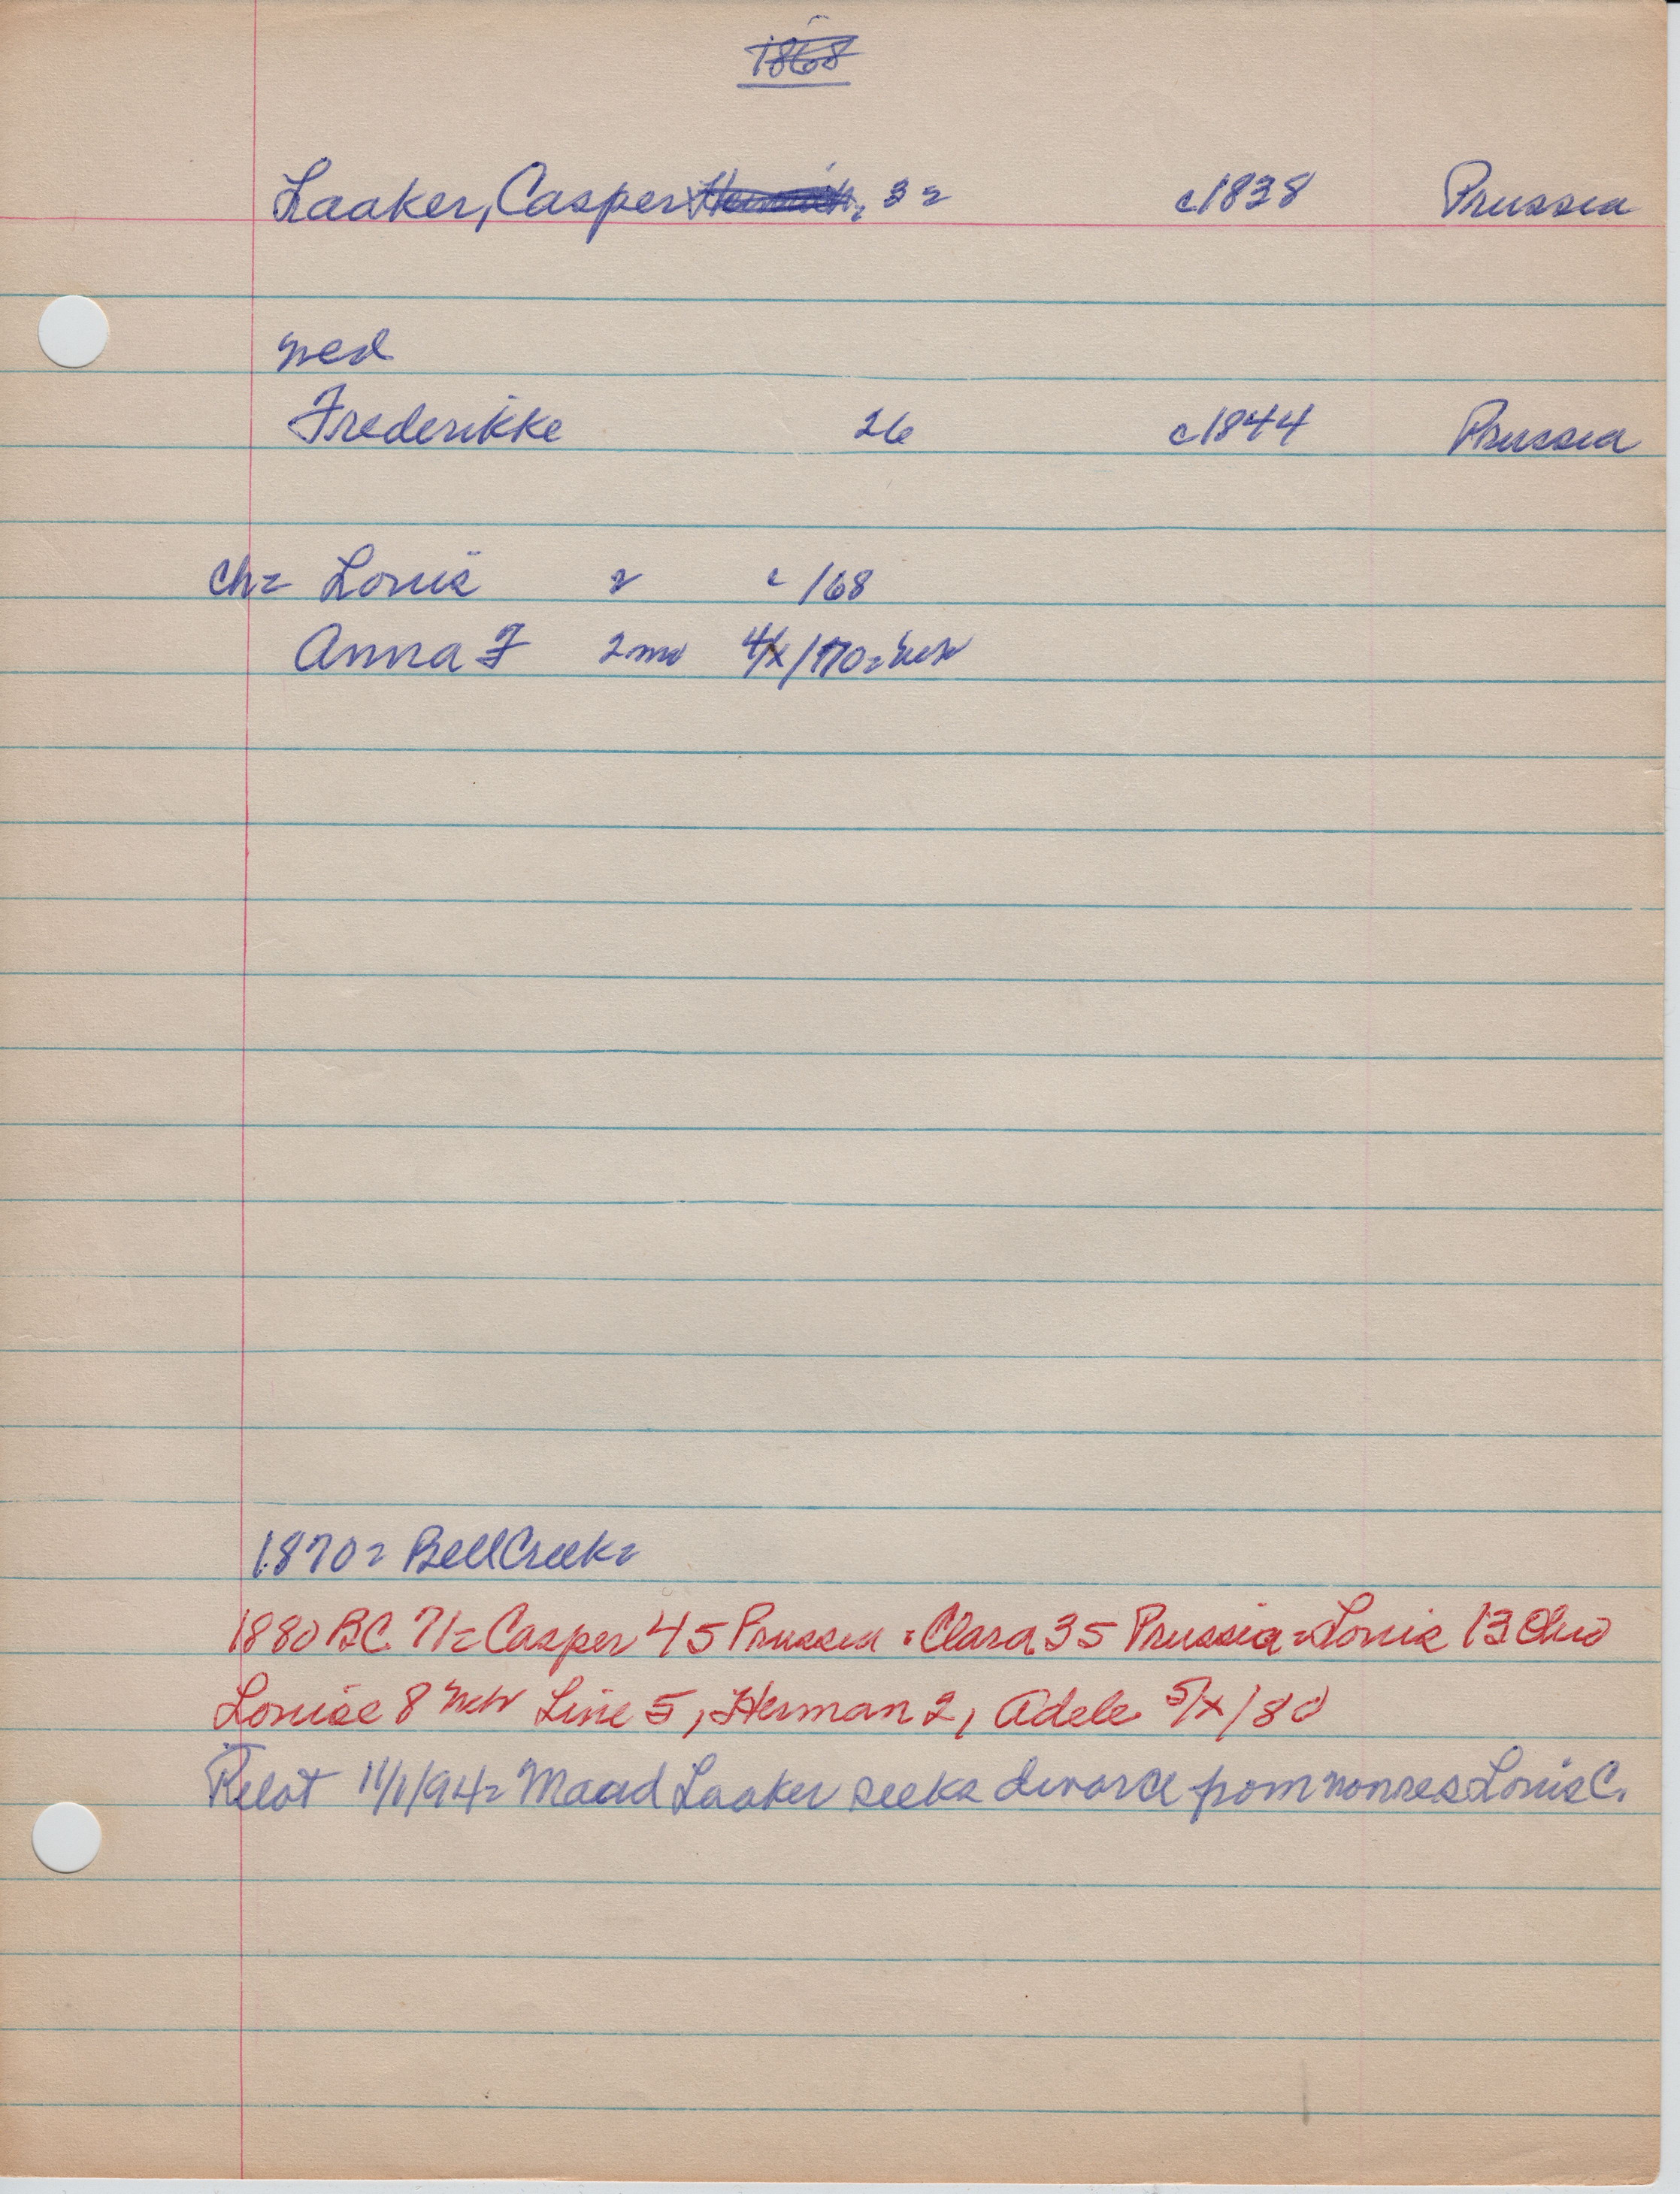 1868
Laaker, Casper 32 c1838 Prussia
wed
Frederikke 26 c1844 Prussia
ch= Louis 2 c/68
Anna F 2mo 4/x/1870=Neb
1870= Bell Creek=
1880 BC 71= Casper 45 Prussia = Clara 35 Prussia = Louis 13 Ohio
Louise 8 Neb Line 5, Herman 2, Adele 5/x/80
11/1/94= Maud Laaker seeks divorce from nonres Louis C.